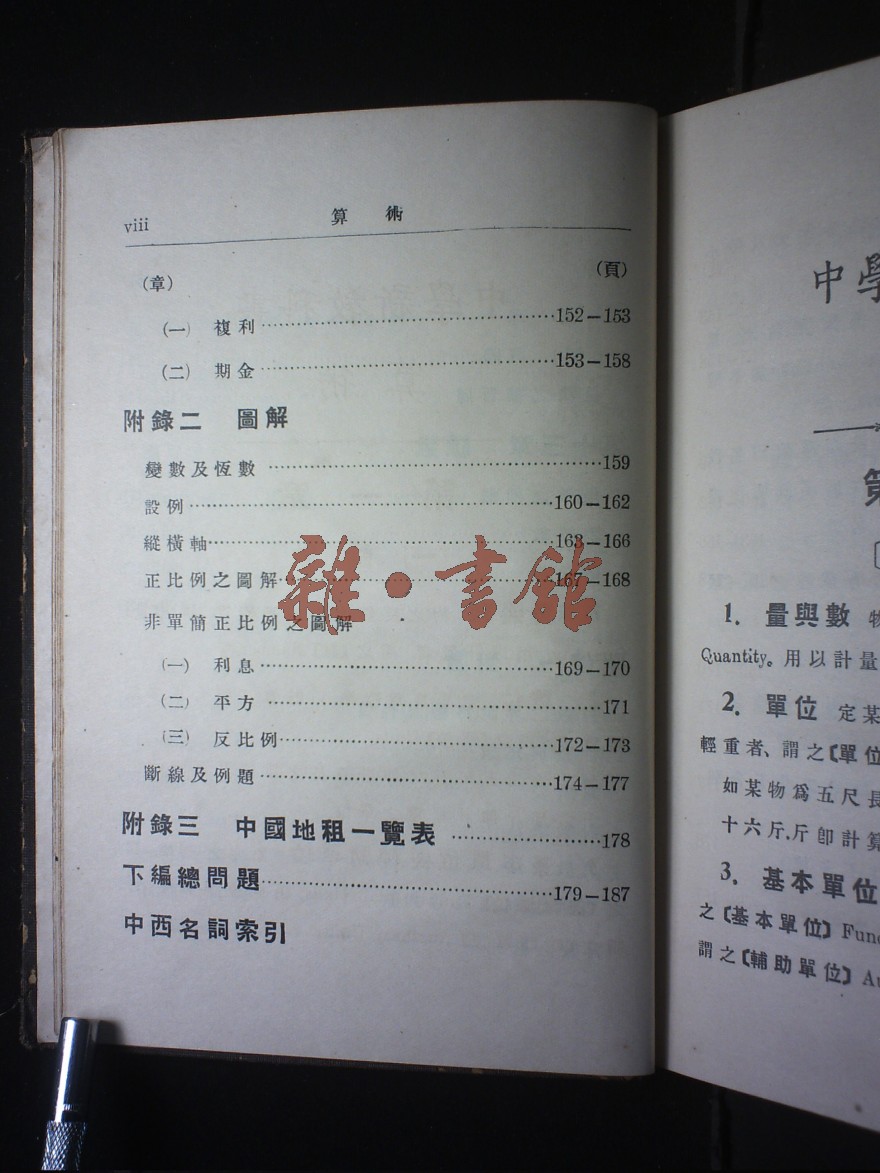 viii 算術
(章) (頁)
(一) 複利……152—153
(二) 期金……153—158
附錄二 圖解
變數及恆數……159
設例……160—162
縱橫軸……163—166
正比例之圖解……167—168
非單簡正比例之圖解
(一) 利息……169—170
(二) 平方……171
(三) 反比例……172—173
斷線及例題……174—177
附錄三 中國地租一覽表……178
下編總問題……179—187
中西名詞索引
雜·書館
中學
第
1. 量與數 物
Quantity。用以計量
2. 單位 定某
輕重者、謂之〔單位
如某物爲五尺長
十六斤.斤卽計算
3. 基本單位
之〔基本單位〕Fun
謂之〔輔助單位〕Au